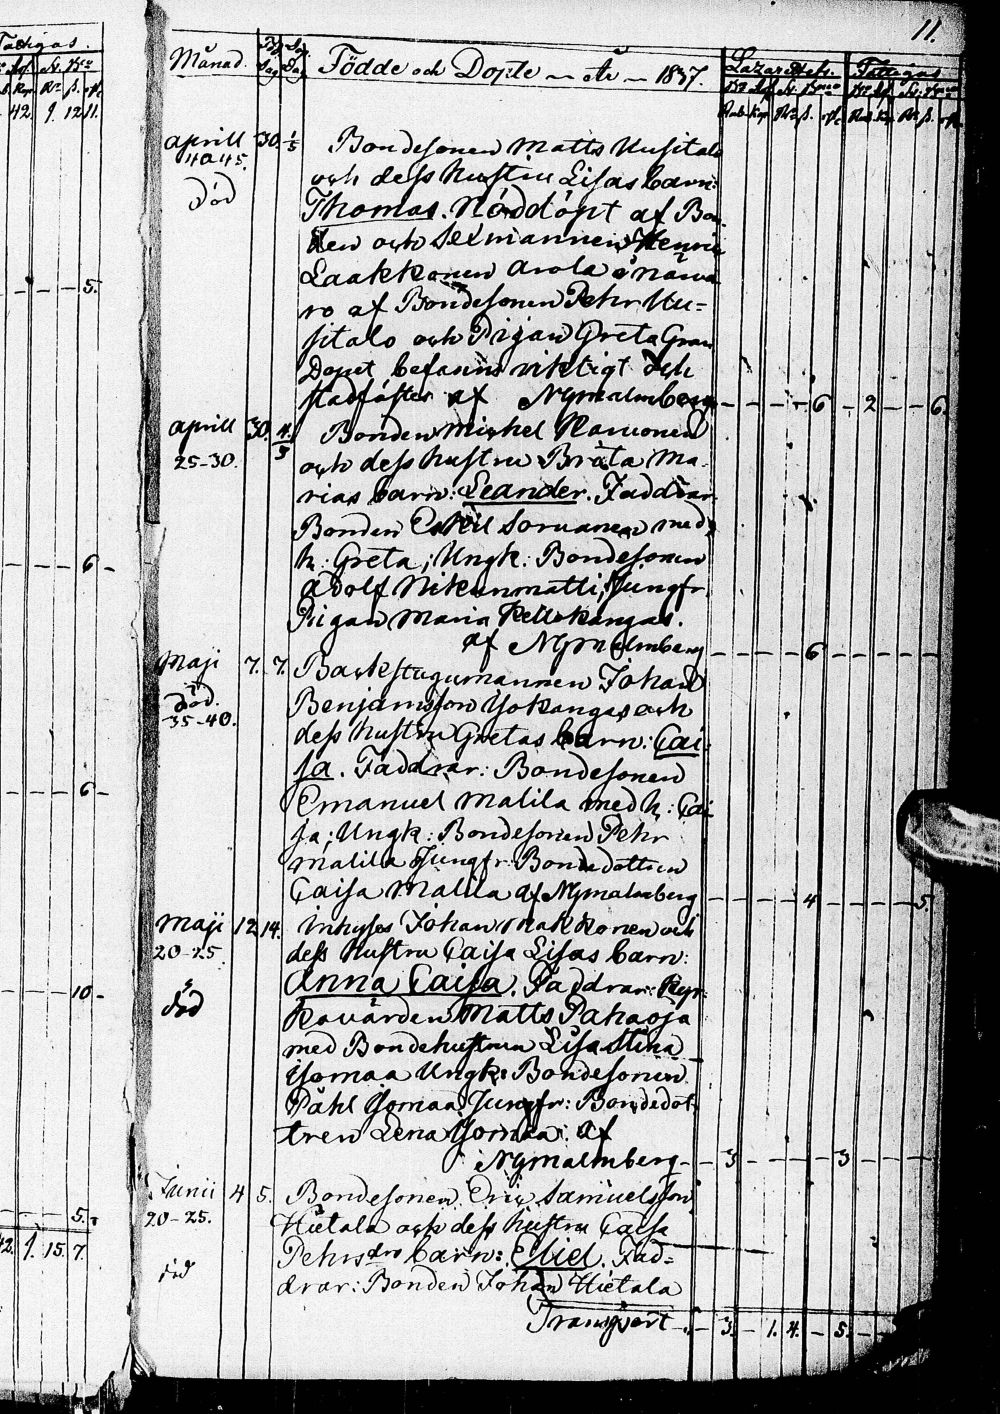 11.
Månad. Födde och Döpte — År — 1837. Lazarettet. Fattigas
aprill 30. 1/5 Bondesonen Matts Uusitalo
40 45. och dess hustru Lisas barn:
Död Thomas. Nöddöpt af Bon-
den och Sexmannen Henric
Laakkonen Arola i närva
ro af Bondesonen Pehr Uu=
sitalo och Pigan Greta
Dopet befanns riktigt och
stadfästes af Nymalmberg — 6 — 2 — 6.
aprill 30. 4/5 Bonden Michel Karvonen
25-30. och dess hustru Brita Ma-
rias barn: Leander. Faddrar
Bonden Eskil Sorvanen med
h: Greta; Ungk: Bondesonen
Adolf Nikunmatti, Jungfr.
Pigan Maria Kellokangas.
af Nymalmberg — 6 —
Maji 7. 7. Backstugumannen Johan
Död. Benjamsson Yokangas och
35-40. dess hustru Gretas barn: Cai-
sa. Faddrar: Bondesonen
Emanuel Malila med h: Cai
sa; Ungk: Bondesonen Pehr
Malila Jungfr: Bondedottren
Caisa Malila af Nymalmberg — 4 — 5.
Maji 12 14. Inhyses Johan Makkonen och
20-25 dess hustru Caisa Lisas barn:
död Anna Caisa. Faddrar: Kyr-
kovärden Matts Pahaoja
med Bondehustrun Lisa Stina
Isomaa Ungk: Bondesonen
Påhl Isomaa, Jungfr: Bondedot-
tren Lena Isomaa: af
Nymalmberg — 3 — 3 —
Junii 4 5. Bondesonen Eric Samuelsson
20-25. Hietala och dess hustru Caisa
död Pehrsdrs barn: Eliel. Fad=
drar: Bonden Johan Hietala
Transport — 3. — 1. 4. — 5.